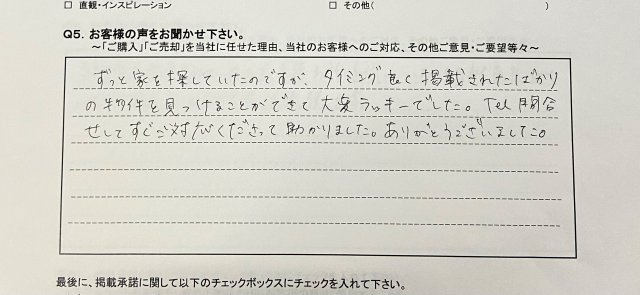 □ 直観・インスピレーション　□ その他(　)
Q5. お客様の声をお聞かせ下さい。
～「ご購入」「ご売却」を当社に任せた理由、当社のお客様へのご対応、その他ご意見・ご要望等々～
ずっと家を探していたのですが、タイミング良く掲載されたばかり
の物件を見つけることができて大変ラッキーでした。Tel問合
せしてすぐご対応くださって助かりました。ありがとうございました。
最後に、掲載承諾に関して以下のチェックボックスにチェックを入れて下さい。